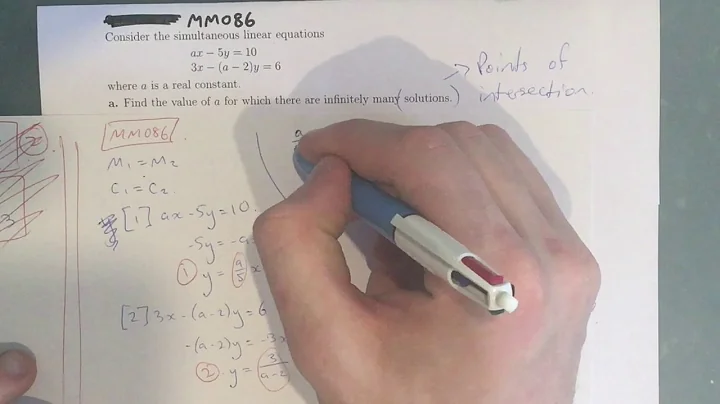 MM086
Consider the simultaneous linear equations
ax − 5y = 10
3x − (a − 2)y = 6
where a is a real constant.
a. Find the value of a for which there are infinitely many (solutions.)
→ Points of
intersection.
2
3
MM086
M₁ = M₂
C₁ = C₂
[1] ax - 5y = 10.
-5y =
① y = a/5 x
[2] 3x - (a-2)y = 6
-(a-2)y = -3x
② y = 3/a-2
a